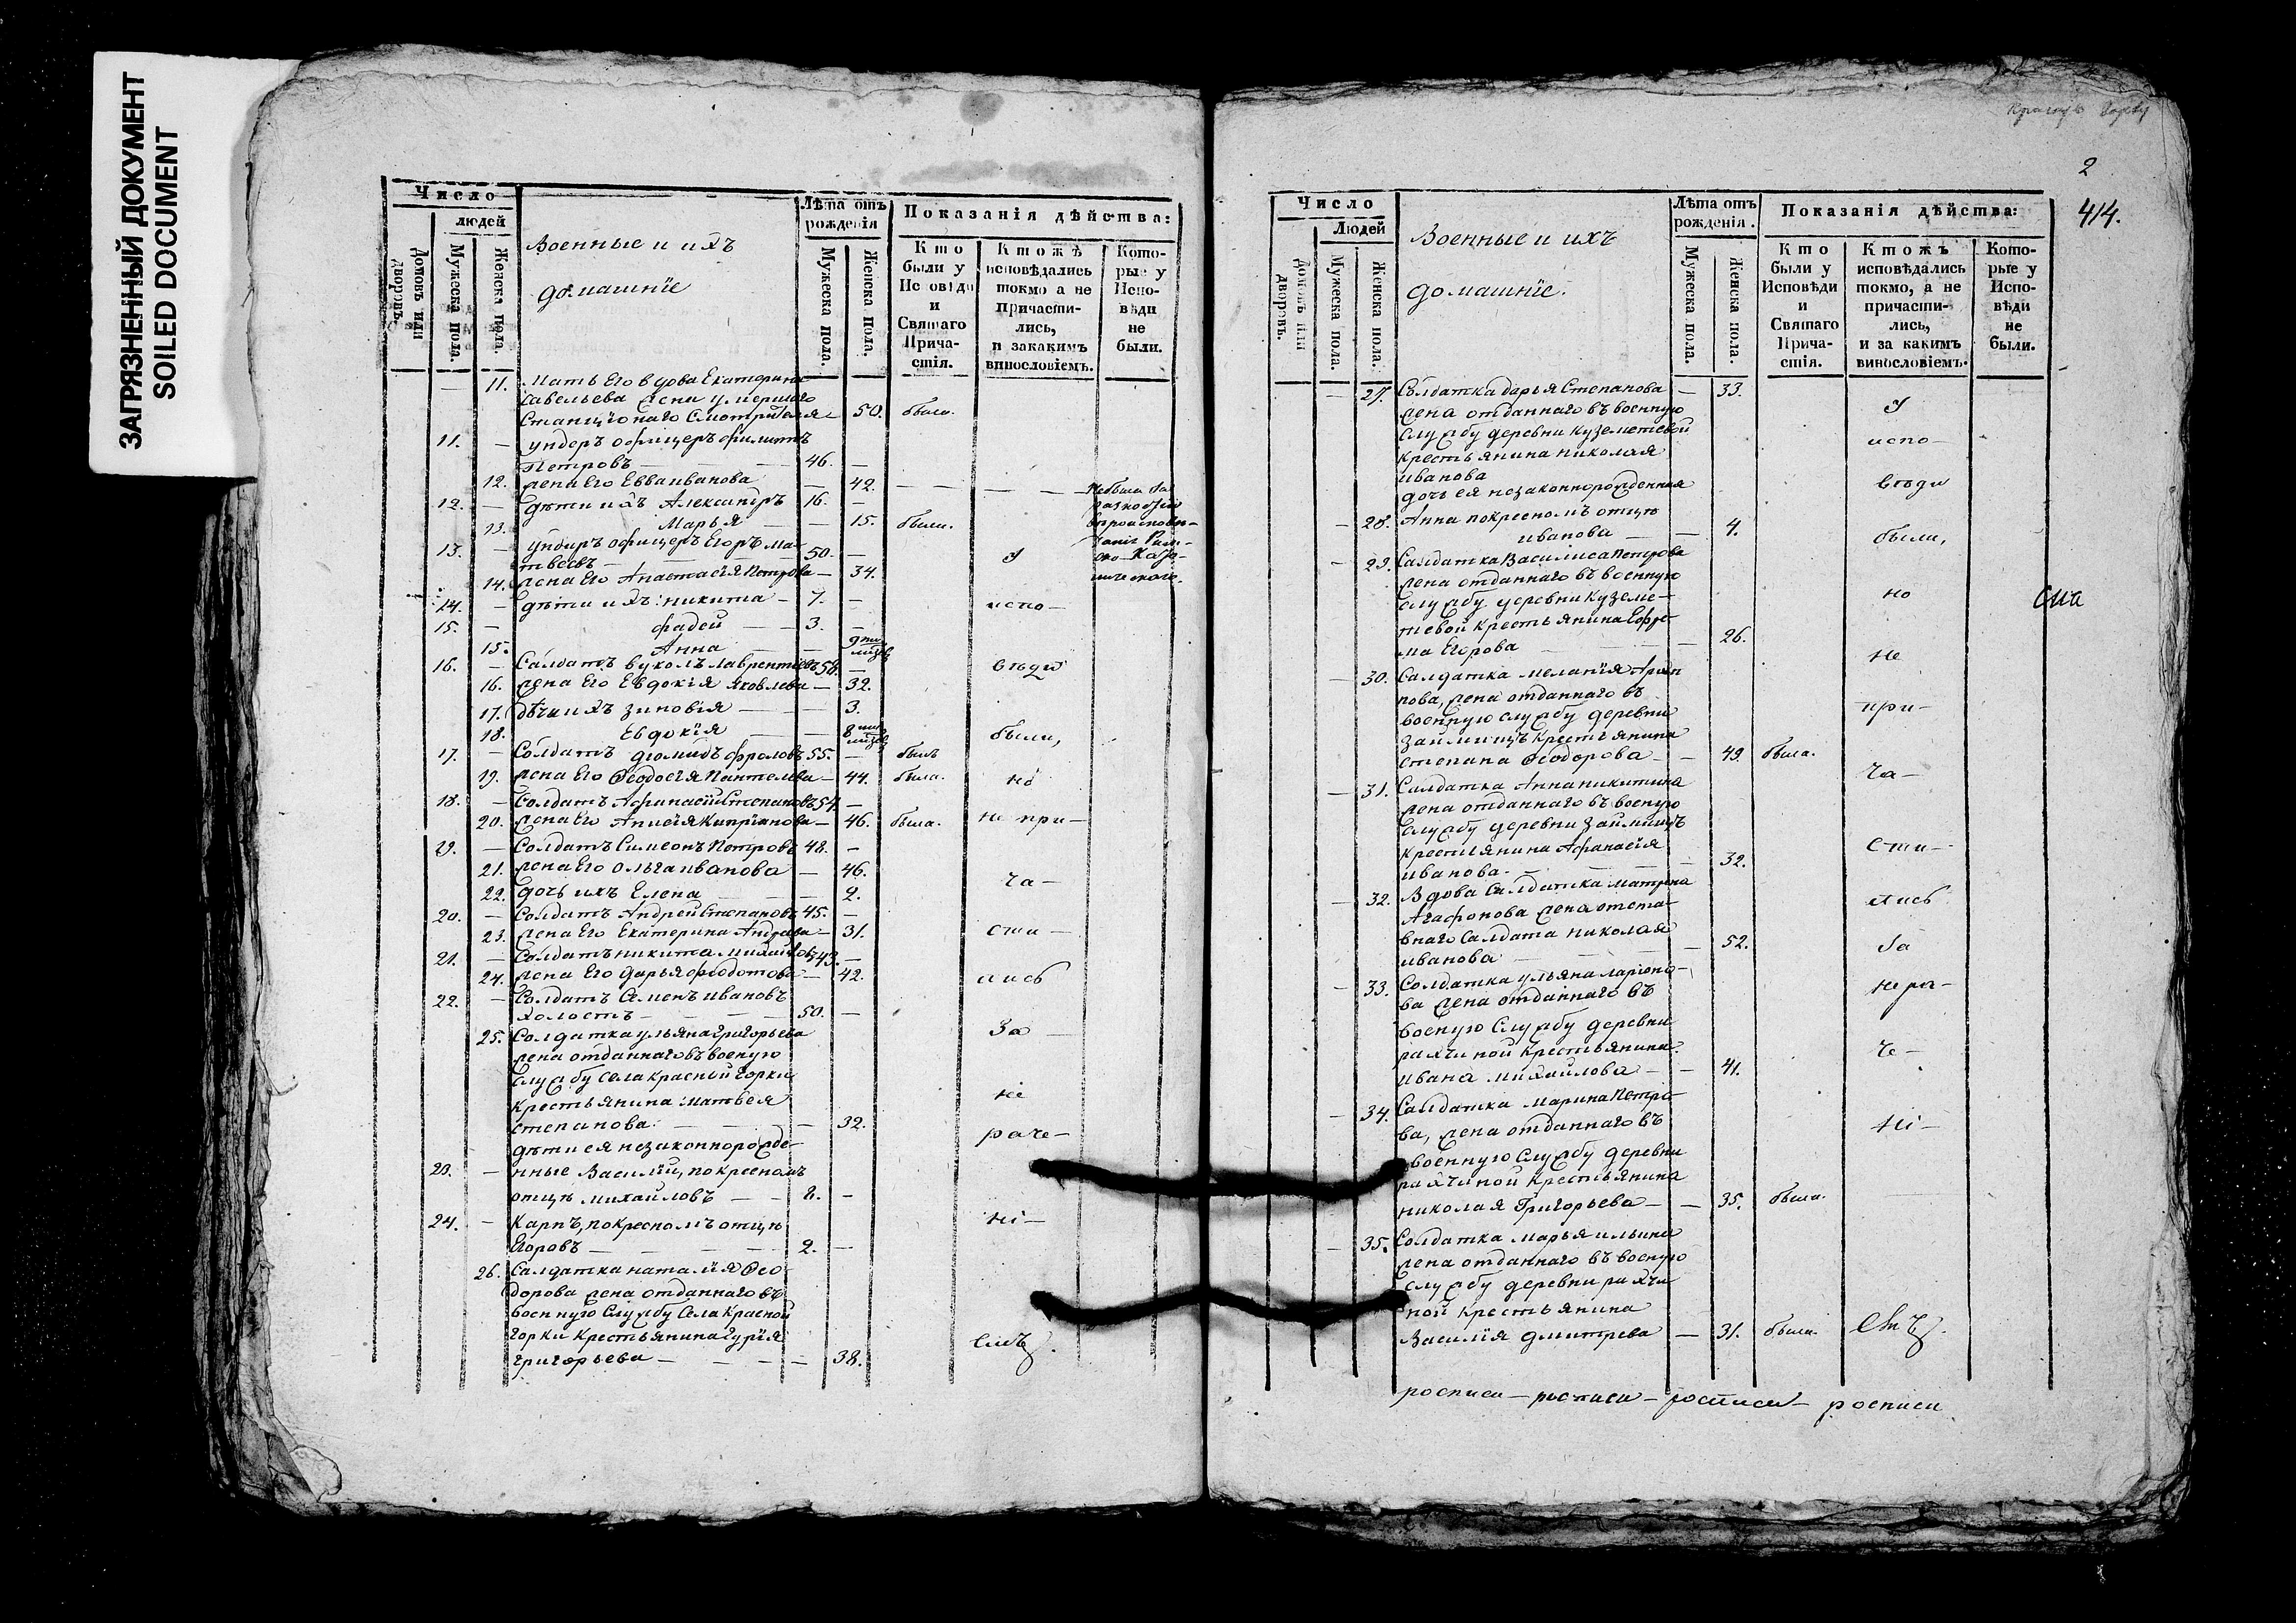 ЗАГРЯЗНЕННЫЙ ДОКУМЕНТ
SOILED DOCUMENT
Число
людей
Домовъ или дворовъ.
Мужеска пола.
Женска пола.
Военные и ихъ
домашніе
Лѣта отъ рожденія
Мужеска пола.
Женска пола.
Показанія дѣйства:
Кто были у Исповѣди и Святаго Прича-стія.
Ктожъ исповѣдались токмо а не Причасти-лись, и закакимъ винословіемъ.
Кото-рые у Испо-вѣди не были.
11. Мать Его вдова Екатерина
Савельева жена умершаго
Станціонаго Смотрителя — 50. была.
11. — ундеръ офицеръ филипъ
Петровъ — 46. —
12. жена Его Евва иванова — 42. — не была за
12. — дѣти ихъ Александръ 16. — разностію
13. Марья — 15. были. вѣроисповѣ-
13. — ундиръ офицеръ Егоръ ма-
твеевъ — 50. — у
14. жена Его Анастасія Петрова — 34.
14. — дѣти ихъ: никита — 7. — испо-
15. — фадей — 3. —
15. Анна — 9ти
16. — Салдатъ вуколъ лаврентіевъ 58. — вѣди
16. жена Его Евдокія Яковлева — 32.
17. дѣти ихъ зиновія — 3.
18. Евдокія — 8 были,
17. — Солдатъ дюмидъ фроловъ 55. — былъ
19. жена Его Ѳеодосія Пантелева — 44. была. но
18. — Солдатъ Афанасій Степановъ 54. —
20. жена Его Анисія Кипріанова — 46. была. не при-
19. — Солдатъ Симеонъ Петровъ 48. —
21. жена Его ольга иванова — 46.
22. дочь ихъ Елена — 2. ча-
20. — Солдатъ Андрей Степановъ 45. —
23. жена Его Екатерина Андреева — 31. сти-
21. — Солдатъ никита михайловъ 43. —
24. жена Его дарья федотова — 42. лись
22. — Солдатъ Семенъ ивановъ
холостъ — 50. —
25. Солдатка ульяна григорьева за
жена отданнаго въ военую
службу села красный горки
крестьянина матвея не
степанова — 32.
дѣти ея незаконнорожде- раче-
23. — нные Василій, по кресномъ
отцѣ михайловъ — 8. —
24. — Карпъ, по кресномъ отцѣ ні-
Егоровъ — 2. —
26. Салдатка наталія Ѳео-
дорова жена отданнаго въ
военную Службу Села Красной
горки Крестьянина гурія
григорьева — 38. емъ.
2
414.
Число
Людей
домовъ или дворовъ.
Мужеска пола.
Женска пола.
Военные и ихъ
домашніе.
Лѣта отъ рожденія.
Мужеска пола.
Женска пола.
Показанія дѣйства:
Кто были у Исповѣди и Святаго Прича-стія.
Ктожъ исповѣдались токмо, а не причасти-лись, и за какимъ винословіемъ.
Кото-рые у Испо-вѣди не были.
— 27. Солдатка дарья Степанова — 33.
жена отданнаго въ военную у
службу деревни Куземетевой
крестьянина николая испо-
иванова
дочь ея незаконнорожденная вѣди
— 28. Анна по кресномъ отцѣ
иванова — 4. были,
— 29. Салдатка Василиса Петрова
жена отданнаго въ военную
службу деревни Куземе- но
тевой Крестьянина Ефре-
ма Егорова — 26. не
— 30. Салдатка меланія Архи
пова, жена отданнаго въ
военную службу деревни при-
займищъ Крестьянина
степана Ѳеодорова — 49. была. ча-
— 31. Салдатка Анна никитина
жена отданнаго въ военую
службу деревни займищъ
крестьянина Афанасія сти-
иванова — 32.
— 32. Вдова Салдатка матрена лись
Агафонова жена отста-
внаго Салдата николая за
иванова — 52.
— 33. Солдатка ульяна ларіоно-
ва жена отданнаго въ нера-
военую Службу деревни
рахчиной Крестьянина че-
ивана михайлова — 41.
— 34. Салдатка марина Петро-
ва, жена отданнаго въ ні-
военную Службу деревни
рахчиной Крестьянина
николая Григорьева — 35. была.
— 35. Солдатка марья ильина
жена отданнаго въ военую
службу деревни рахчи
ной Крестьянина
Василія дмитрева — 31. была. емъ.
росписи — росписи — росписи — росписи